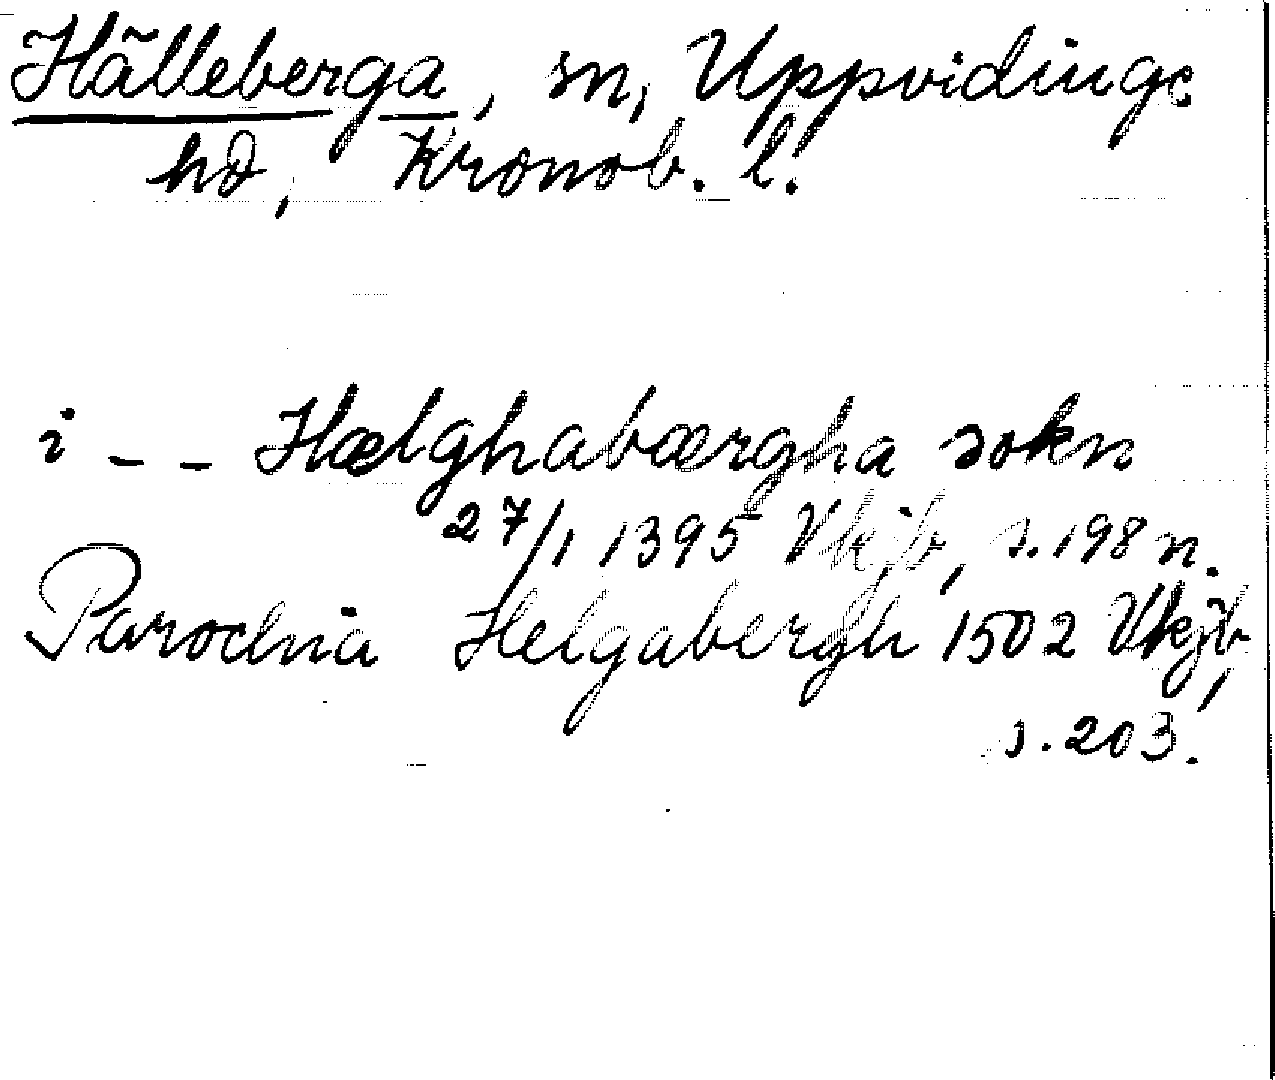 Hälleberga, sn, Uppvidinge
hd, Kronob. l.
i - - Hælghabærgha sokn
27/1 1395 Vkjb, s. 198 n.
Parochia Helgabergh 1502 Vkjb,
s. 203.